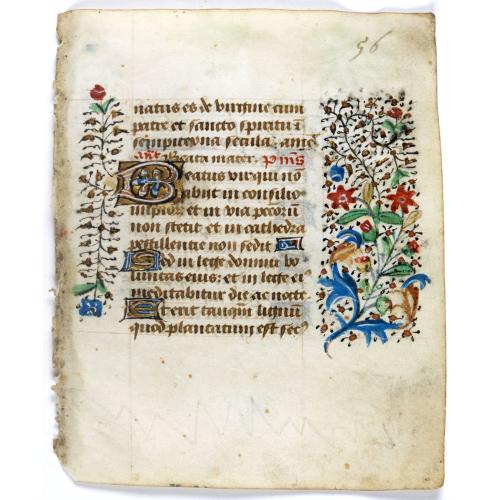 56
natus es de virgine cum
patre et sancto spiritu i
sempiterna secula. ante
ant Beata mater. p̄mͣs
Beatus vir qui no
abiit in consilio
impior et in via pecorū
non stetit et in cathedra
pestilentie non sedit
Sed in lege domini vo
luntas eius: et in lege ei
meditabitur die ac nocte
Et erit tanq̄ lignū
quod plantatum est sec